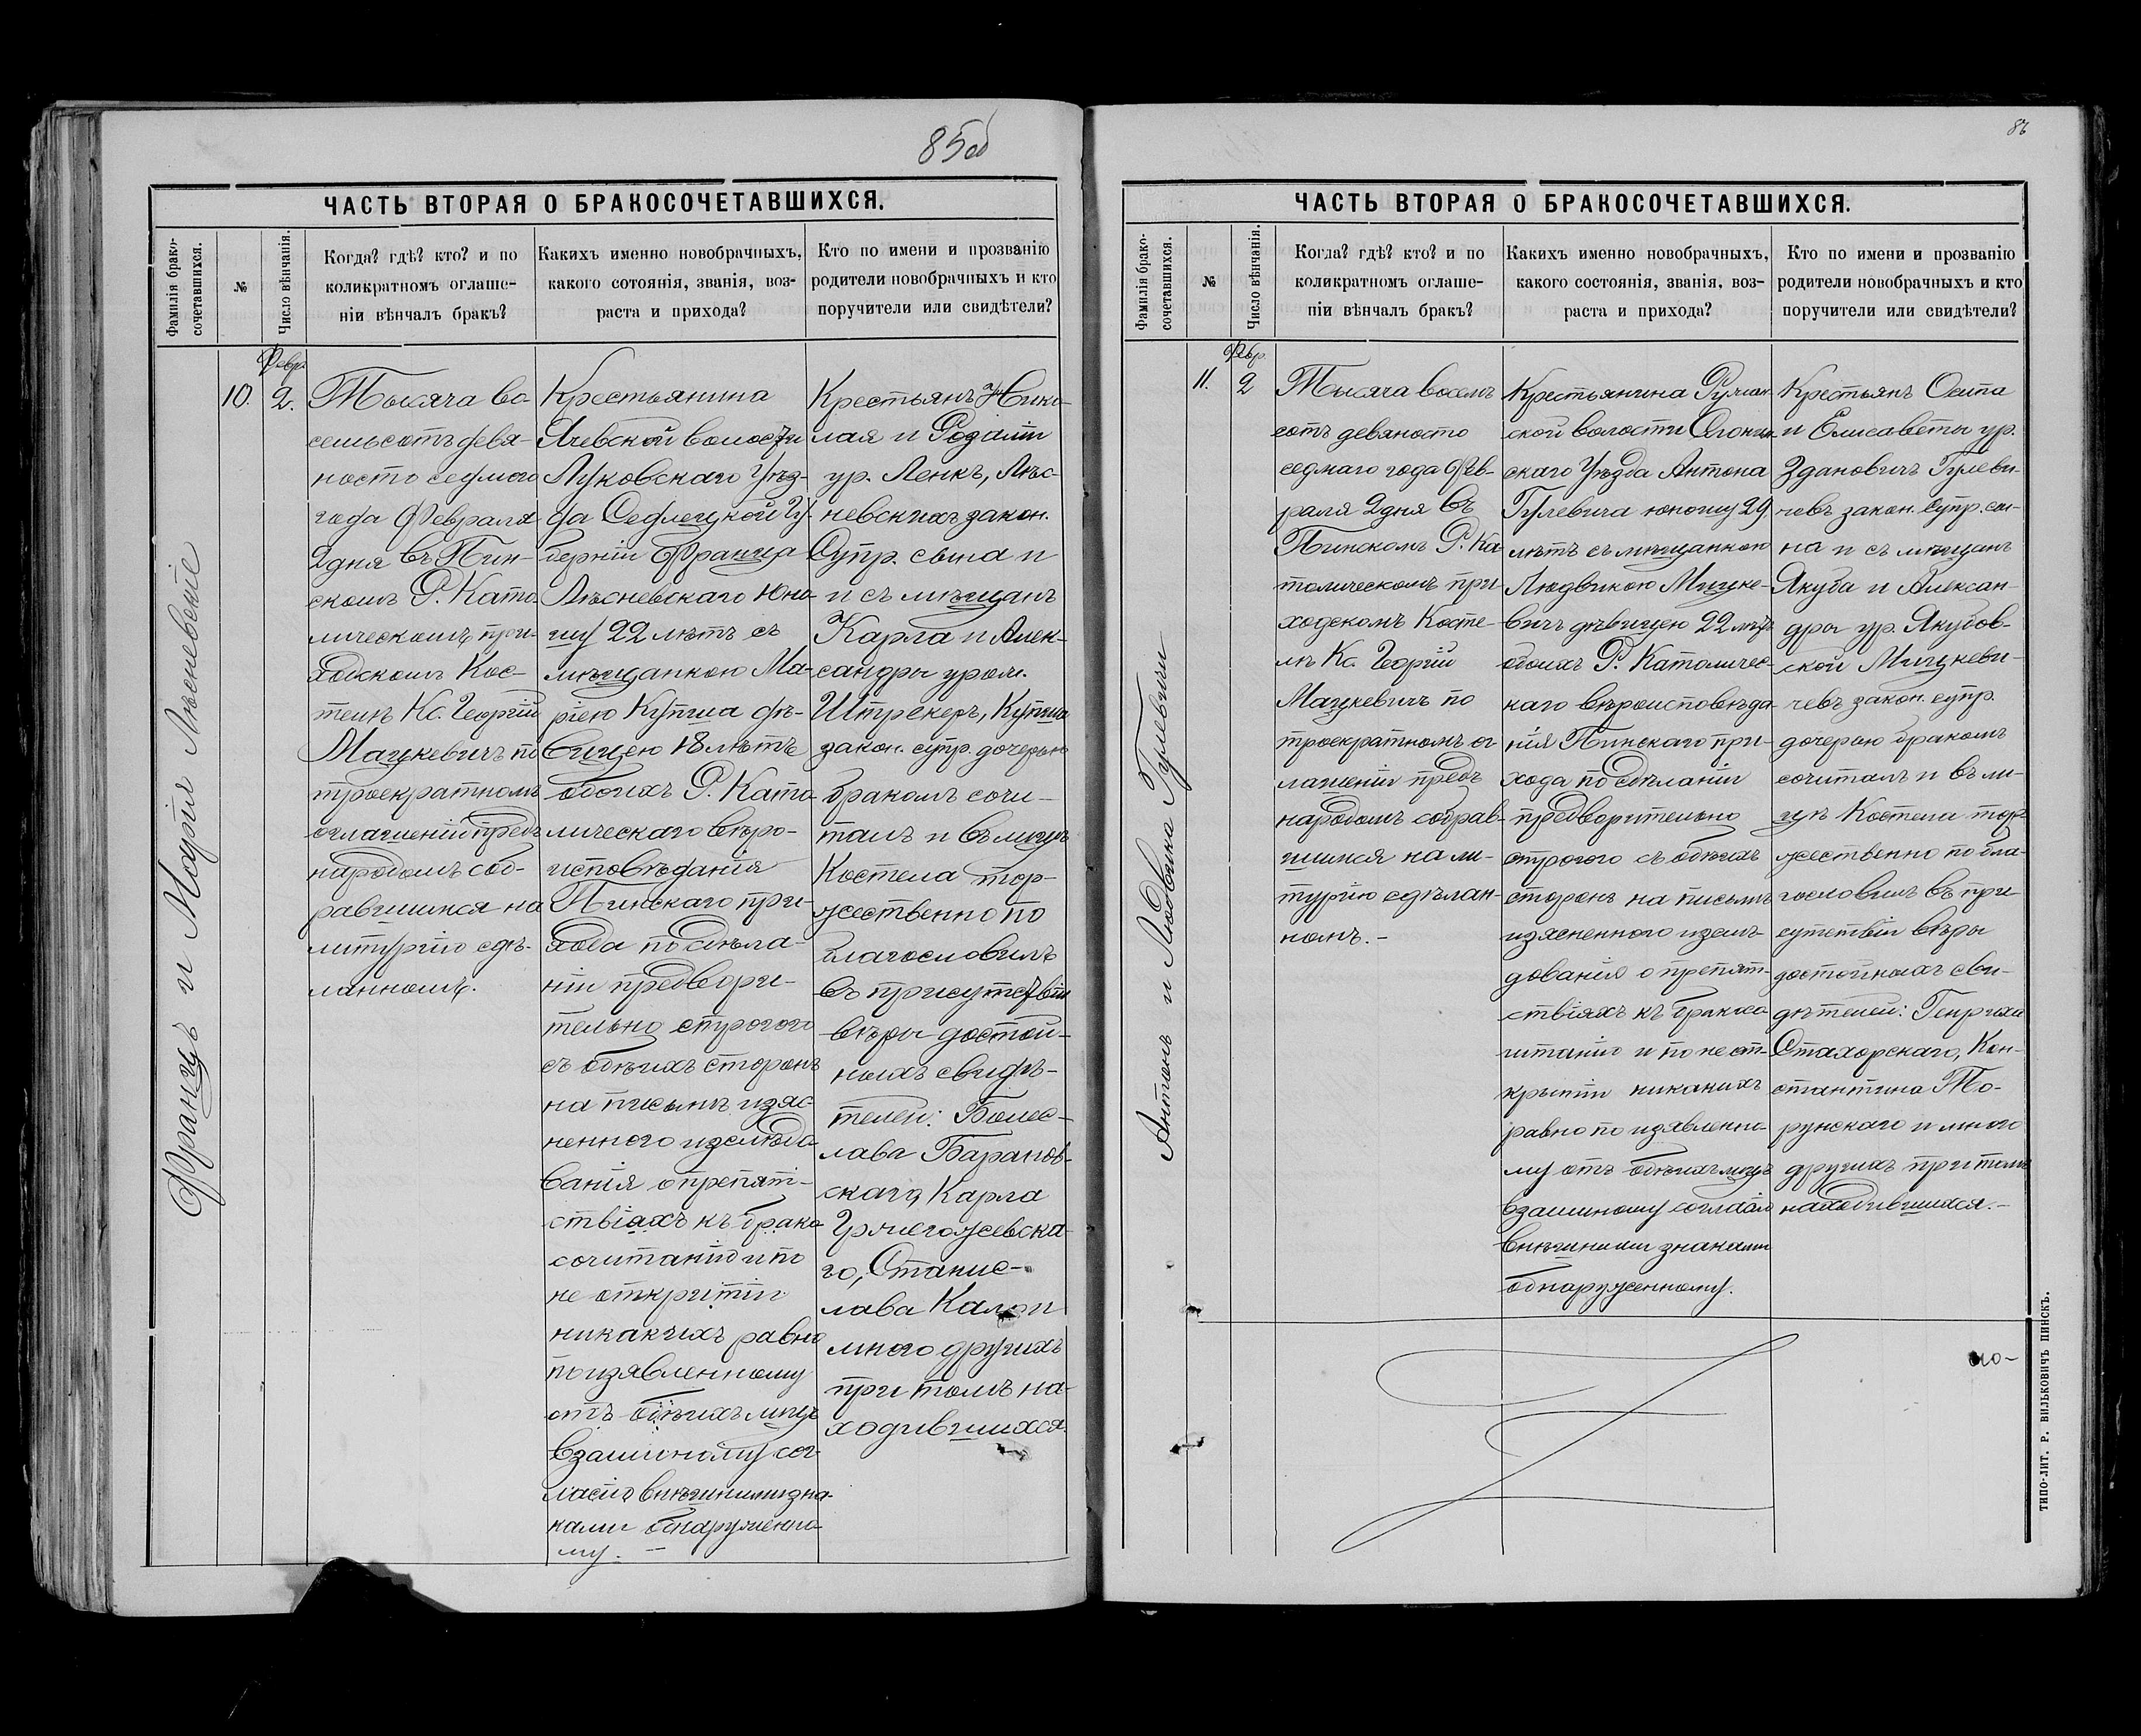 85об
ЧАСТЬ ВТОРАЯ О БРАКОСОЧЕТАВШИХСЯ.
Фамилія брако-
сочетавшихся.
№
Число вѣнчанія.
Когда? гдѣ? кто? и по
коликратномъ оглаше-
ніи вѣнчалъ бракъ?
Какихъ именно новобрачныхъ,
какого сотоянія, званія, воз-
раста и прихода?
Кто по имени и прозванію
родители новобрачныхъ и кто
поручители или свидѣтели?
Францъ и Марія Лѣсневскіе
10.
Февр.
2.
Тысяча во-
семьсотъ девя-
носто седмого
года Февраля
2 дня въ Пин-
скомъ Р. Като-
лическомъ при-
ходскомъ Кос-
телѣ Кс. Георгій
Мацкевичъ по
троекратномъ
оглашеніи предъ
народомъ соб-
равшимся на
литургію сдѣ-
ланномъ.
Крестьянина
волости
Луковскаго Уѣз-
да Седлецкой Гу-
берніи Франца
Лѣсневскаго юно-
шу 22 лѣтъ съ
мѣщанкою Ма-
ріею Купша дѣ-
вицею 18 лѣтъ
обоихъ Р. Като-
лическаго вѣро-
исповѣданія
Пинскаго при-
хода по сдѣла-
ніи предвори-
тельно строгого
съ обѣихъ сторонъ
на письмѣ изяс-
ненного изслѣдо-
ванія о препят-
ствіяхъ къ брако-
сочитанію и по
не открытіи
никакихъ равно
по изявленному
отъ обѣихъ лицъ
взаимному сог-
ласію внѣшними зна-
ками обнаруженно-
му. —
Крестьянъ Нико-
лая и Розаліи
ур. Ленкъ, Лѣс-
невскихъ закон.
Супр. сына и
и съ мѣщанъ
Карла и Алек-
сандры урож.
Штрекеръ, Купша
закон. супр. дочерью
бракомъ сочи-
талъ и въ лицѣ
Костела тор-
жественно по
благословилъ
въ присутствіи
вѣры достой-
ныхъ свидѣ-
телей: Болес-
лава Баранов-
скаго, Карла
Гржегожевска-
го, Станис-
лава и
много другихъ
при томъ на-
ходившихся
86
ЧАСТЬ ВТОРАЯ О БРАКОСОЧЕТАВШИХСЯ.
Фамилія брако-
сочетавшихся.
№
Число вѣнчанія.
Когда? гдѣ? кто? и по
коликратномъ оглаше-
ніи вѣнчалъ бракъ?
Какихъ именно новобрачныхъ,
какого состоянія, званія, воз-
раста и прихода?
Кто по имени и прозванію
родители новобрачныхъ и кто
поручители или свидѣтели?
Антонъ и Людвика Гулевичи
11.
Февр.
2
Тысяча восемь
сотъ девяносто
седмаго года Фев-
раля 2 дня въ
Пинскомъ Р. Ка-
толическомъ при-
ходскомъ Косте-
лѣ Кс. Георгій
Мацкевичъ по
троекратномъ ог
лашеніи предъ
народомъ собрав-
шимся на ли-
тургію сдѣлан-
номъ. —
Крестьянина
ской волости Слоним-
скаго Уѣзда Антона
Гулевича юношу 29
лѣтъ съ мѣщанкою
Людвикою Мицке-
вичъ дѣвицею 22 лѣтъ
обоихъ Р. Католичес-
каго вѣроисповѣда-
нія Пинскаго при-
хода по сдѣланіи
предворительно
строгого съ обѣихъ
сторонъ на письмѣ
изясненного изслѣ-
дованія о препят-
ствіяхъ къ бракосо-
читанію и по не от-
крытіи никакихъ
равно по изявленно-
му отъ обѣихъ лицъ
взаимному согласію
внѣшними знаками
обнаруженному.
Крестьянъ Осипа
и Елисаветы ур.
Здановичъ Гулеви-
чевъ закон. Супр. сы-
на и съ мѣщанъ
Якуба и Алексан-
дры ур. Якубов-
ской Мицкеви-
чевъ закон. супр.
дочерью бракомъ
сочиталъ и въ ли-
цѣ Костела тор-
жественно по бла-
гословилъ въ при
сутствіи вѣры
достойныхъ сви-
дѣтелей: Генриха
Стахорскаго, Кон-
стантина То-
рунскаго и много
другихъ при томъ
находившихся. —
ТИПО-ЛИТ. Р. ВИЛЬКОВИЧЪ ПИНСКЪ.